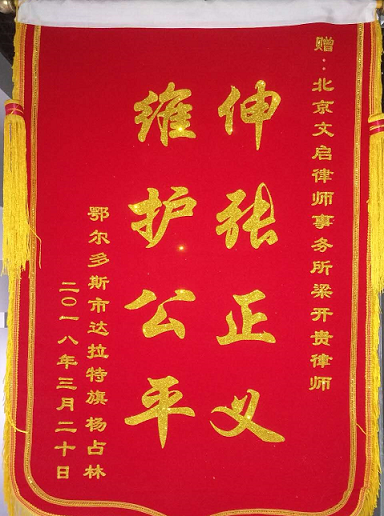 赠：北京文启律师事务所梁开贵律师
伸张正义
维护公平
鄂尔多斯市达拉特旗杨占林
二〇一八年三月二十日